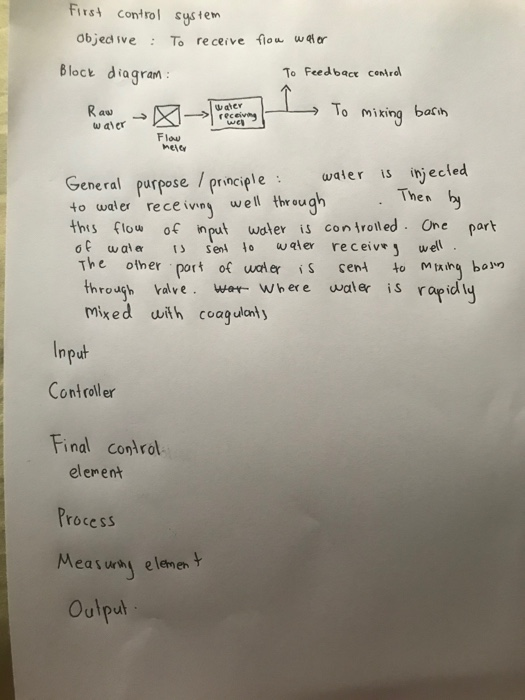 First control system
Objective : To receive flow water
Block diagram :
To Feedback control
Raw water
Flow meter
water receiving well
To mixing basin
General purpose / principle : water is injected
to water receiving well through . Then by
this flow of input water is controlled. One part
of water is sent to water receiving well .
The other part of water is sent to mixing basin
through valve. Where water is rapidly
mixed with coagulants
Input
Controller
Final control
element
Process
Measuring element
Output